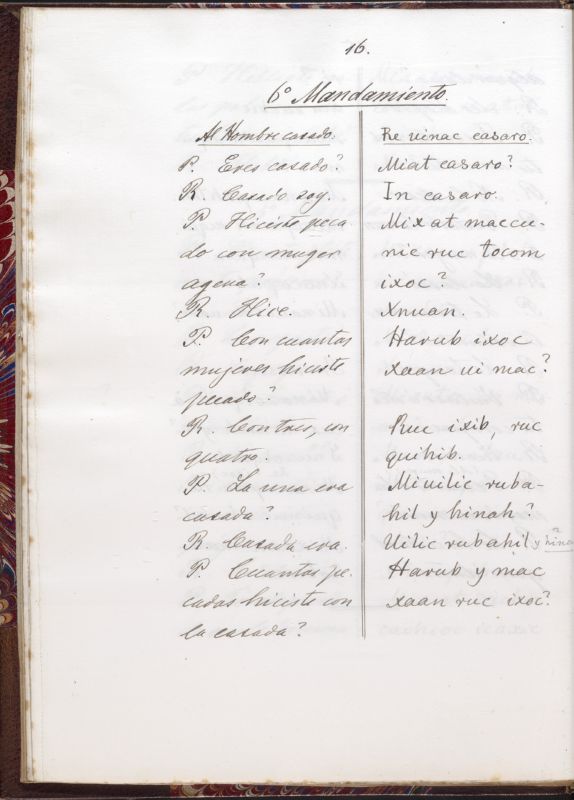 16.
6º Mandamiento.
Al Hombre casado.
P. Eres casado?
R. Casado soy.
P. Hiciste peca-
do con muger
agena?
R. Hice.
P. Con cuantas
mujeres hiciste
pecado?
R. Con tres, con
quatro.
P. La una era
casada?
R. Casada era.
P. Cuantos pe-
cados hiciste con
la casada?
Re uinac casaro.
Miat casaro?
In casaro.
Mixat maccu-
nic ruc tocom
ixoc?
Xnuan.
Harub ixoc
xaan ui mac?
Ruc ixib, ruc
quihib.
Miuilic ruba-
hil y hinah?
Uilic rubahil y
Harub y mac
xaan ruc ixoc?